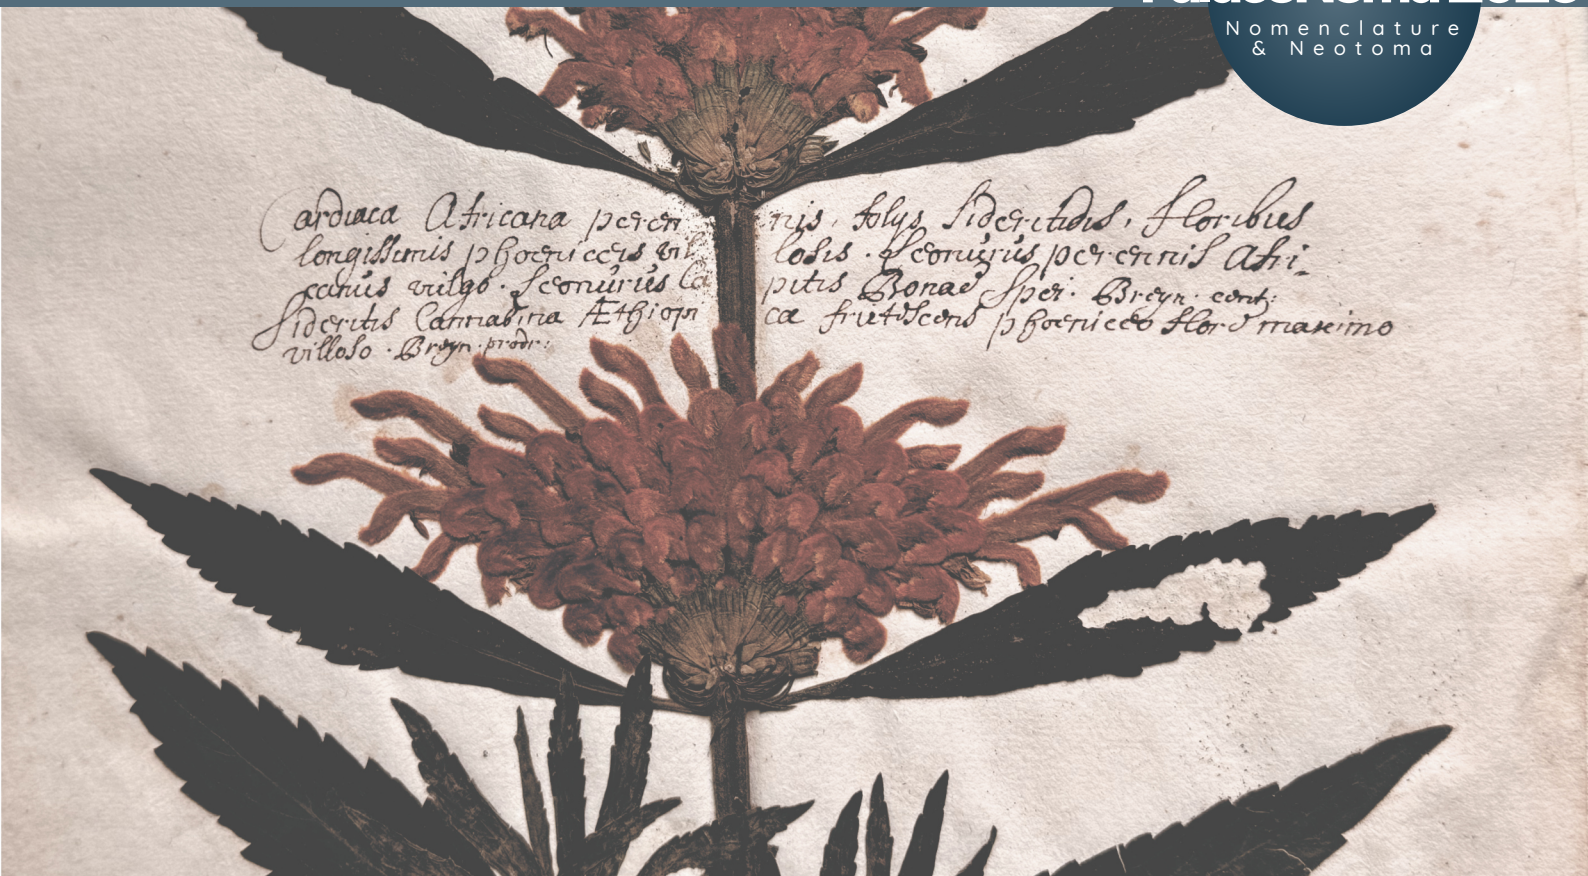 Nomenclature
& Neotoma
Cardiaca Africana perennis, folys Sideritidis, floribus
longissimis phoeniceis villosis. Leonurus perennis Afri-
canus vulgo. Leonurus Capitis Bonae Spei. Breyn. cent:
Sideritis Cannabina Æthiopica frutescens phoeniceo flore maximo
villoso. Breyn. prodr: